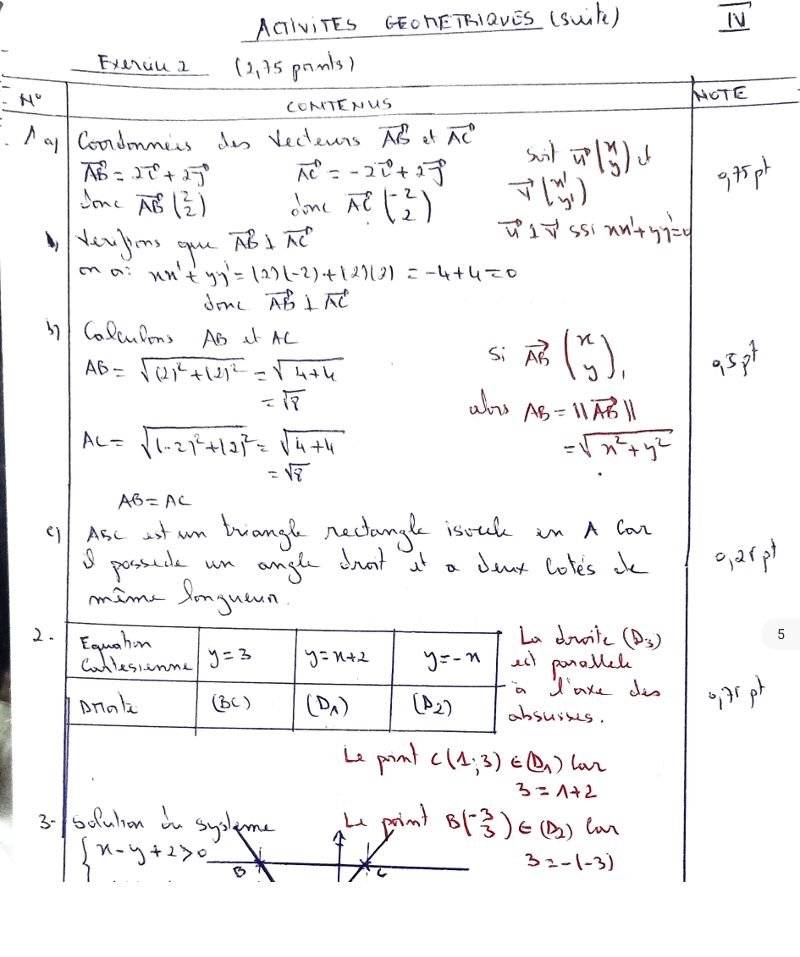 ACTIVITES GEOMETRIQUES (suite)
IV
Exercice 2 (2,75 points)
N° CONTENUS NOTE
1 a) Coordonnées des vecteurs AB⃗ et AC⃗
AB⃗ = 2i⃗ + 2j⃗ AC⃗ = -2i⃗ + 2j⃗
donc AB⃗ (2 2) donc AC⃗ (-2 2)
soit u⃗ (x y) et
v⃗ (x' y')
u⃗ ⊥ v⃗ ssi xx' + yy' = 0
0,75 pt
Verifions que AB⃗ ⊥ AC⃗
on a: xx' + yy' = (2)(-2) + (2)(2) = -4 + 4 = 0
donc AB⃗ ⊥ AC⃗
b) Calculons AB et AC
AB = √(2)² + (2)² = √4+4
= √8
AC = √(-2)² + (2)² = √4+4
= √8
AB = AC
Si AB⃗ (x y),
alors AB = ||AB⃗||
= √x² + y²
0,5 pt
c) ABC est un triangle rectangle isocele en A car
il possede un angle droit et a deux cotés de
même longueur.
0,25 pt
2. Equation Cartesienne y = 3 y = x+2 y = -x
Droite (BC) (D1) (D2)
La droite (D3)
est parallele
à l'axe des
abscisses.
0,75 pt
Le point C(1;3) ∈ (D1) car
3 = 1+2
3- Solution du système
{ x - y + 2 > 0
Le point B(-3 3) ∈ (D2) car
3 = -(-3)
B C
5